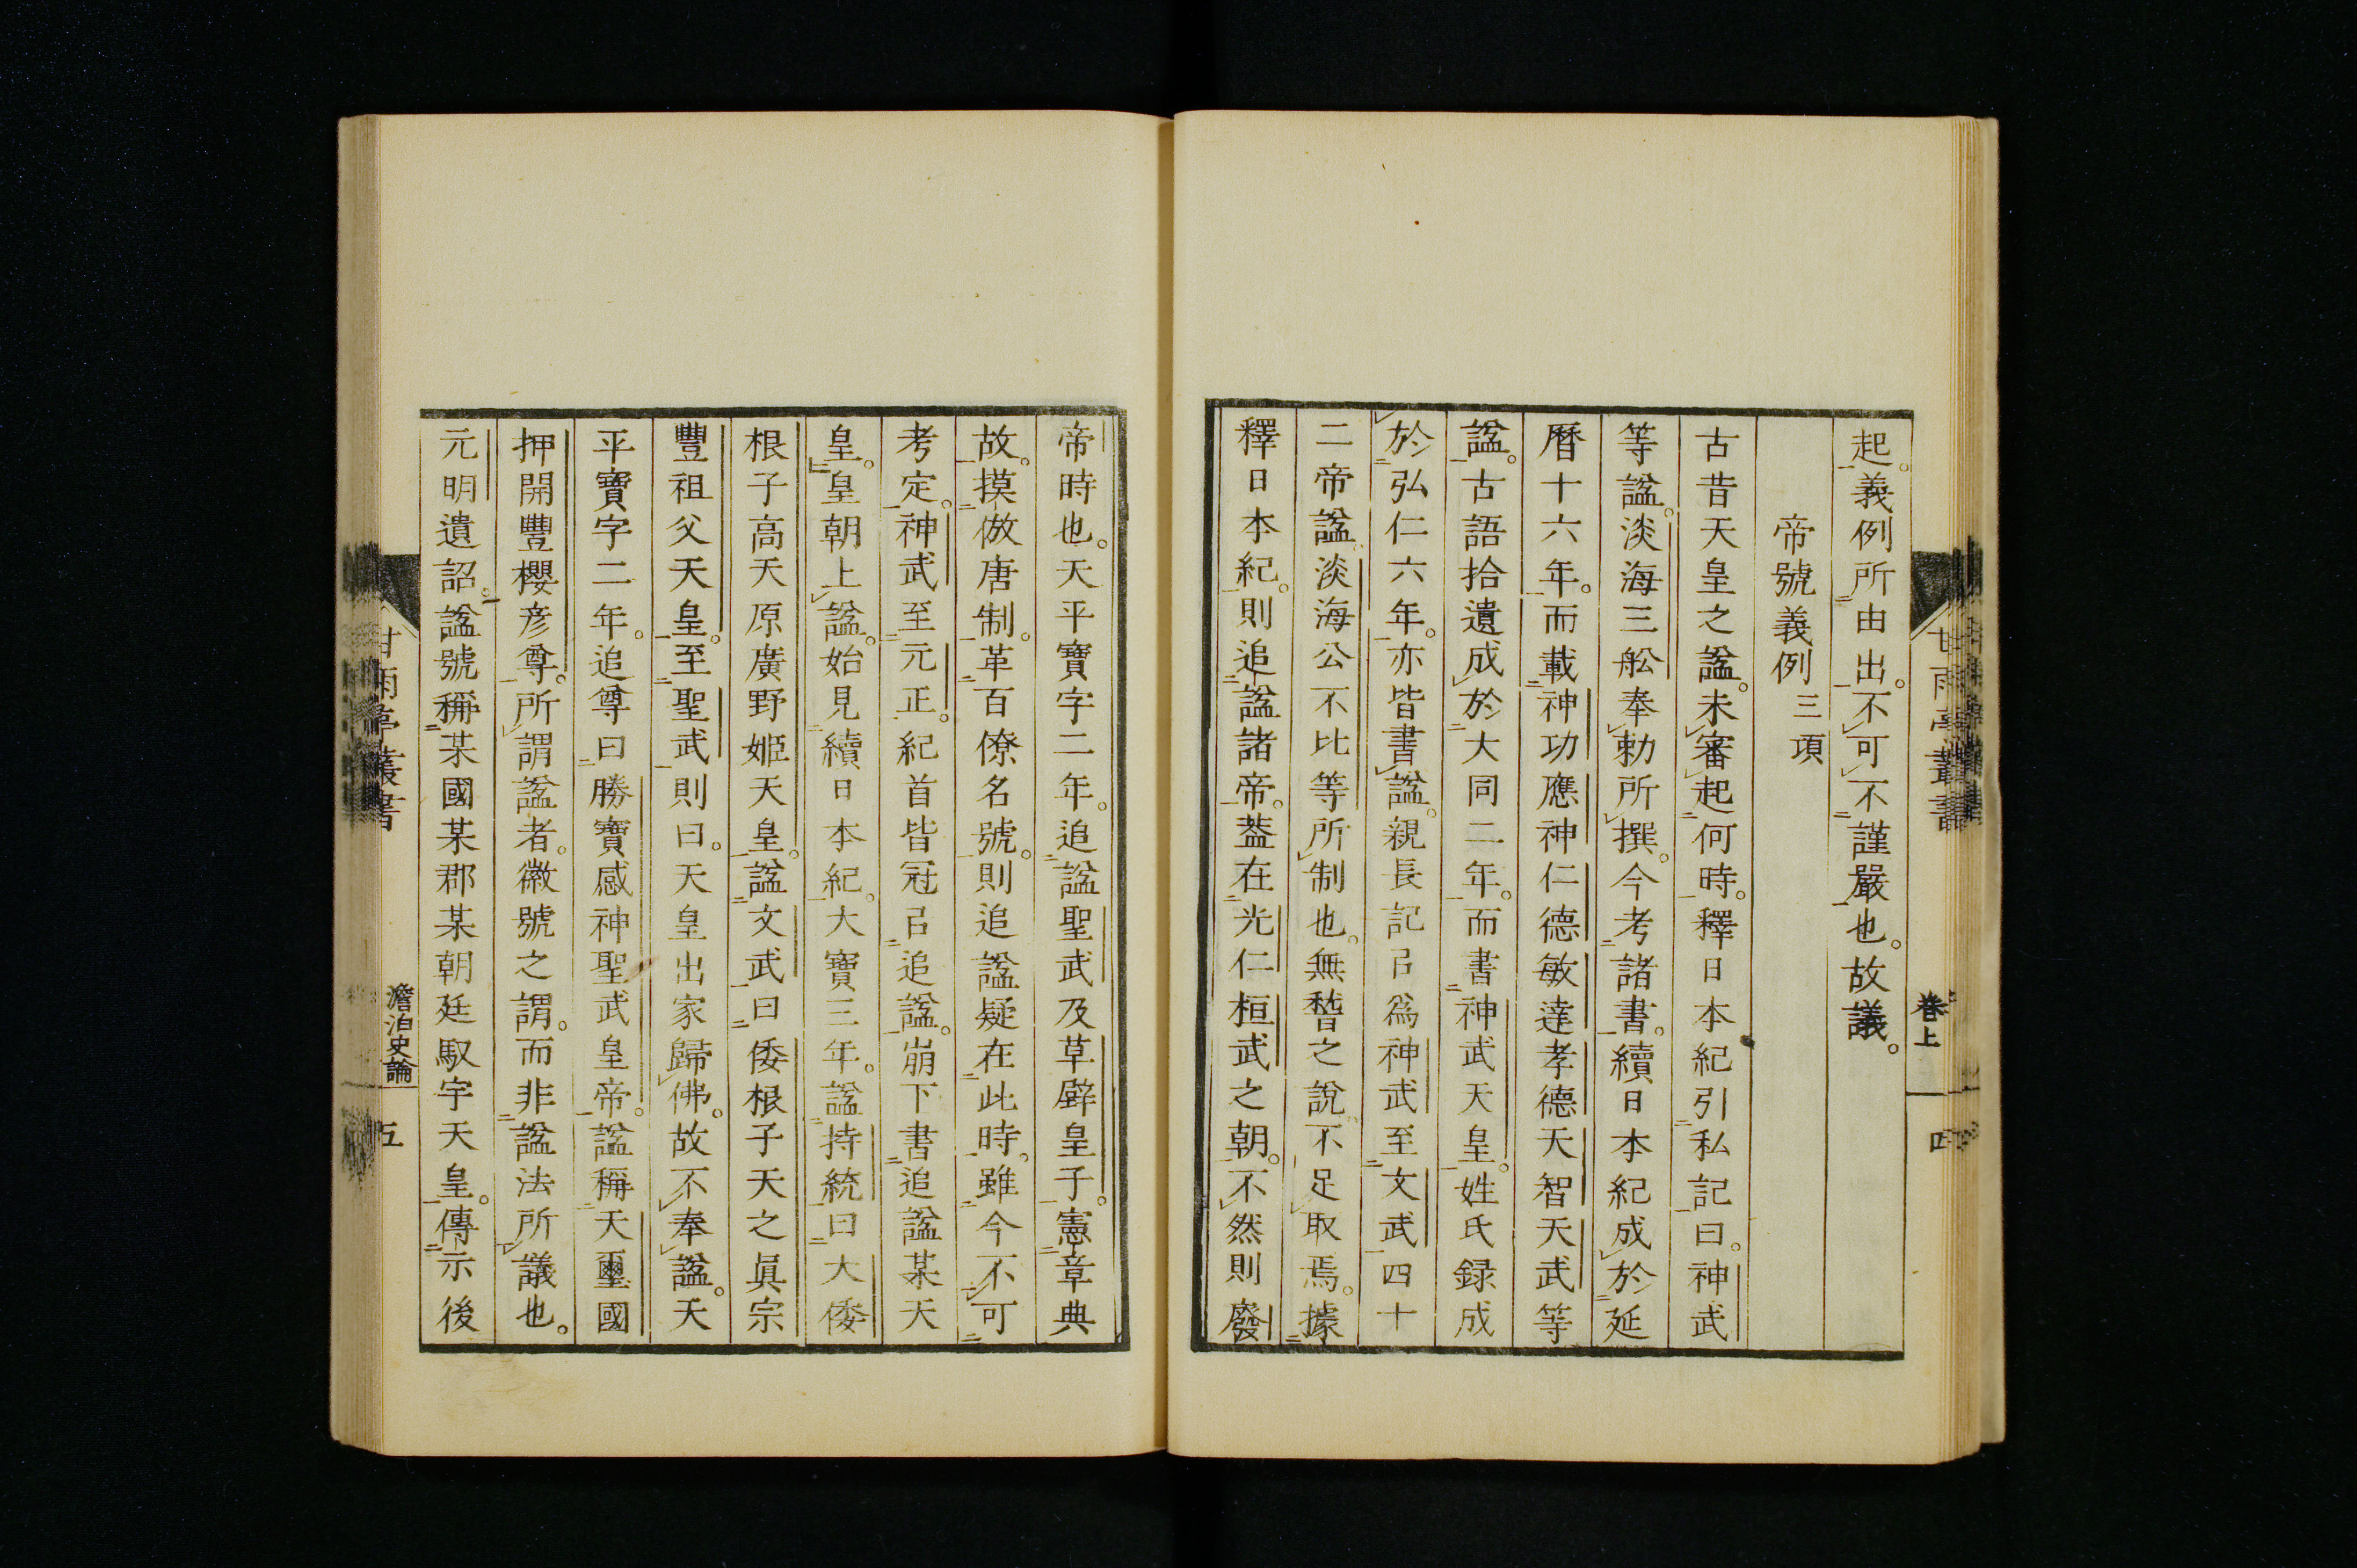 起。義例所由出。不可不謹嚴也。故議。
帝號義例三項
古昔天皇之諡。未審起何時。釋日本紀引私記曰。神武
等諡。淡海三舩奉勅所撰。今考諸書。續日本紀成於延
曆十六年。而載神功應神仁德敏達孝德天智天武等
諡。古語拾遺成於大同二年。而書神武天皇。姓氏録成
於弘仁六年。亦皆書諡。親長記㠯爲神武至文武四十
二帝諡淡海公不比等所制也。無稽之說不足取焉。據
釋日本紀。則追諡諸帝。葢在光仁桓武之朝。不然則廢
帝時也。天平寶字二年。追諡聖武及草壁皇子。憲章典
故。摸倣唐制。革百僚名號。則追諡疑在此時。雖今不可
考定。神武至元正。紀首皆冠㠯追諡。崩下書追諡某天
皇。皇朝上諡。始見續日本紀。大寶三年。諡持統曰大倭
根子高天原廣野姬天皇。諡文武曰倭根子天之眞宗
豐祖父天皇。至聖武則曰。天皇出家歸佛。故不奉諡。天
平寶字二年。追尊曰勝寶感神聖武皇帝。諡稱天璽國
押開豐櫻彦尊。所謂諡者。徽號之謂。而非諡法所議也。
元明遺詔。諡號稱某國某郡某朝廷馭宇天皇。傳示後
甘雨亭叢書
卷上
四
甘雨亭叢書
澹泊史論
五